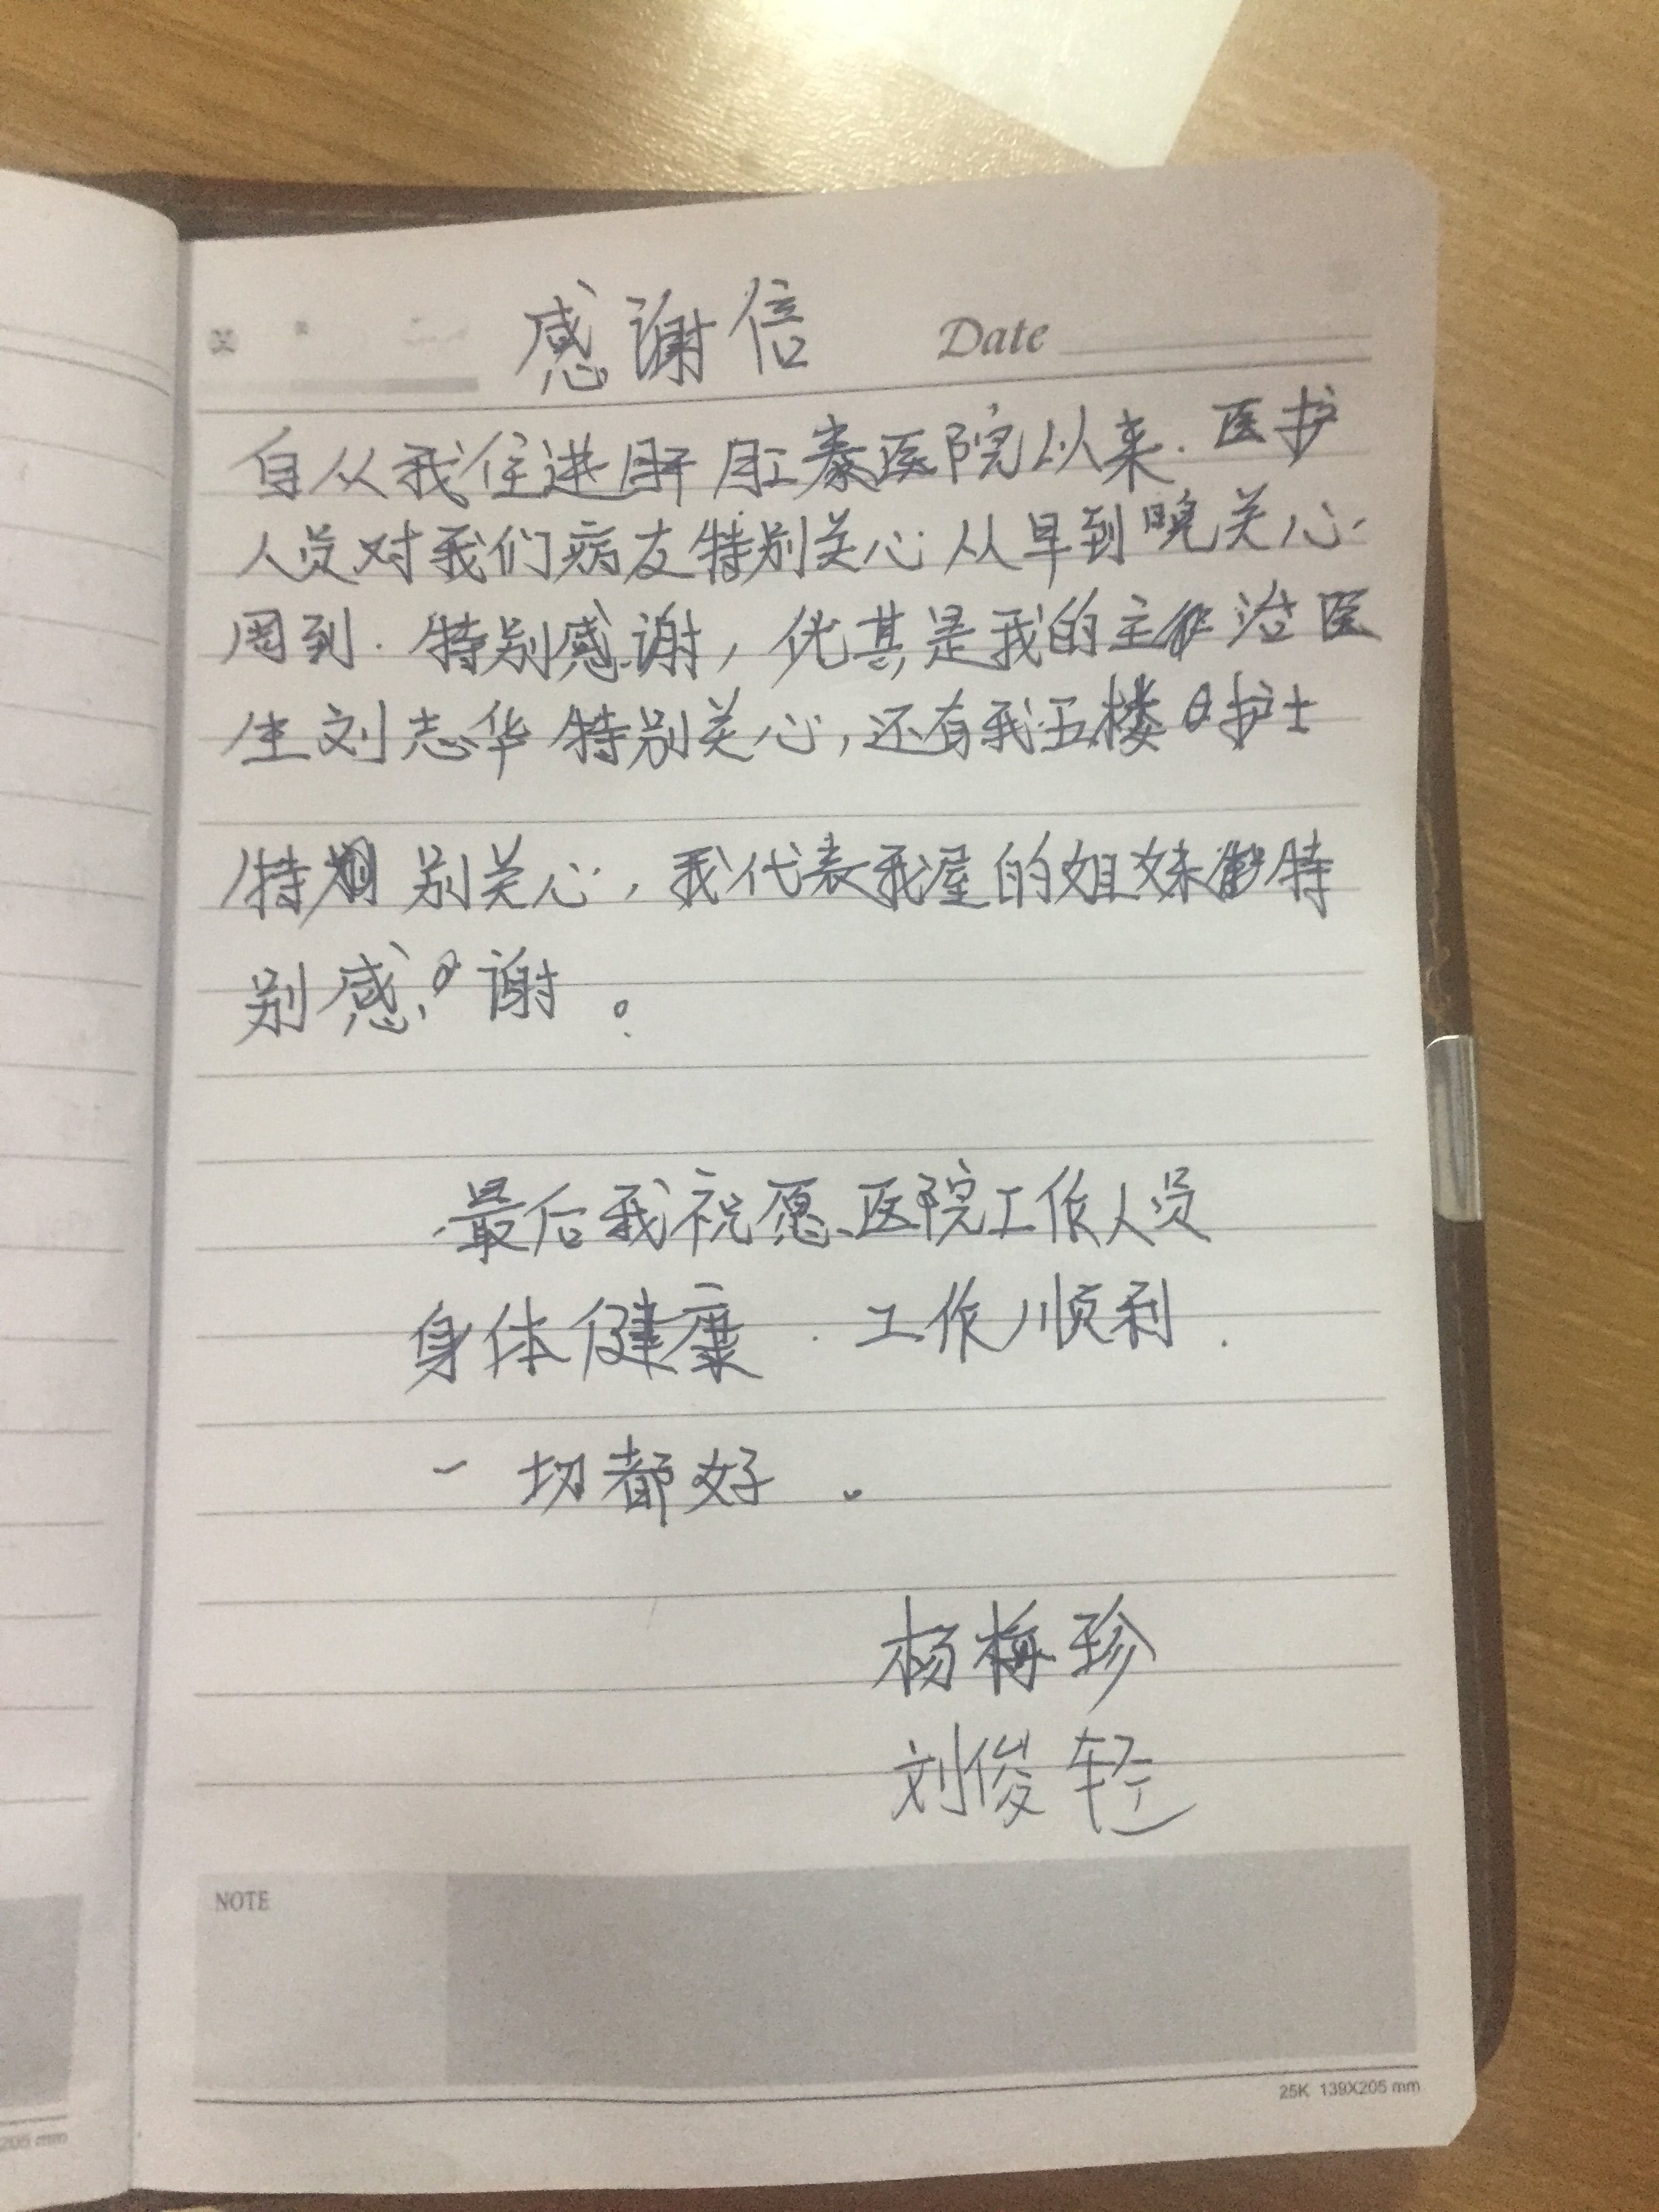 感谢信
Date
自从我住进肝肛泰医院以来.医护
人员对我们病友特别关心.从早到晚关心.
周到.特别感谢,优其是我的主治医
生刘志华特别关心,还有我五楼护士
特别关心,我代表我屋的姐妹特
别感谢。
最后我祝愿医院工作人员
身体健康.工作顺利.
一切都好.
杨梅珍
刘俊轻
NOTE
25K 139X205 mm
205 mm